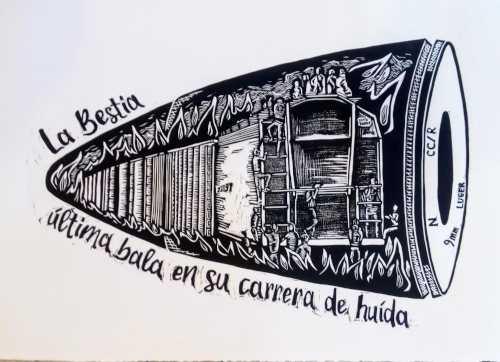 La Bestia
última bala en su carrera de huída
N CC/R
9mm LUGER